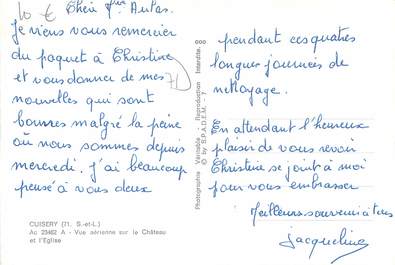 10 €
Chère Mme Autas.
Je viens vous remercier
du paquet à Christine
et vous donner de mes
nouvelles qui sont
bonnes malgré la peine
où nous sommes depuis
mercredi. j'ai beaucoup
pensé à vous deux
CUISERY (71. S.-et-L.)
Ac 23462 A - Vue aérienne sur le Château
et l'Eglise
Photographie Véritable - Reproduction Interdite.
© by S.P.A.D.E.M.
pendant ces quatres
longues journées de
nettoyage.
En attendant l'heureux
plaisir de vous revoir
Christine se joint à moi
pour vous embrasser
Meilleurs souvenirs à tous
jacqueline